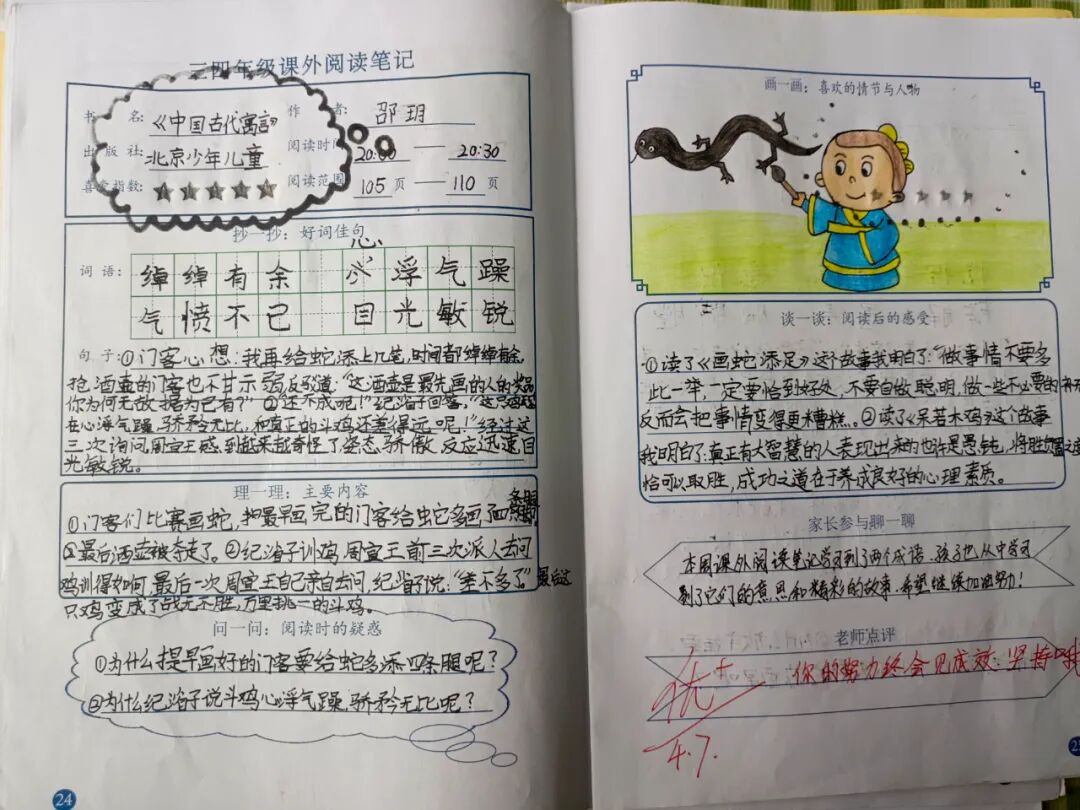 三四年级课外阅读笔记
书 名：《中国古代寓言》 作 者：邵玥
出版社：北京少年儿童 阅读时间 20:00 — 20:30
喜爱指数：★★★★★ 阅读范围 105 页 — 110 页
抄一抄：好词佳句
词语：绰绰有余 心浮气躁
气愤不已 目光敏锐
句子：①门客心想：我再给蛇添上几笔，时间都绰绰有余，
抢酒壶的门客也不甘示弱反驳道：“这酒壶是最先画的人的奖品
你为何无故据为已有？”②“还不成呢！”纪渻子回答，“这只鸡现
在心浮气躁，骄矜无比，和真正的斗鸡还差得远呢！”经过这
三次询问，周宣王感到越来越奇怪了姿态骄傲，反应迅速目
光敏锐。
理一理：主要内容
①门客们比赛画蛇，把最早画完的门客给蛇多画了四条腿
最后酒壶被夺走了。②纪渻子训鸡，周宣王前三次派人去问
鸡训得如何，最后一次周宣王自己亲自去问，纪渻子说：“差不多了”最后这
只鸡变成了战无不胜，万里挑一的斗鸡。
问一问：阅读时的疑惑
①为什么提早画好的门客要给蛇多添四条腿呢？
②为什么纪渻子说斗鸡心浮气躁，骄矜无比呢？
24
画一画：喜欢的情节与人物
谈一谈：阅读后的感受
①读了《画蛇添足》这个故事我明白了：“做事情不要多
此一举，一定要恰到好处，不要自做聪明，做一些不必要的
反而会把事情变得更糟糕。②读了《呆若木鸡》这个故事
我明白了：真正有大智慧的人表现出来的也许是愚钝，将胜负置之度
恰可以取胜，成功之道在于养成良好的心理素质。
家长参与聊一聊
本周课外阅读笔记学习到了两个成语，孩子也从中学习
到了它们的意思和精彩的故事，希望继续加油努力！
老师点评
优+ 你的努力终会见成效：坚持哦
4.7.